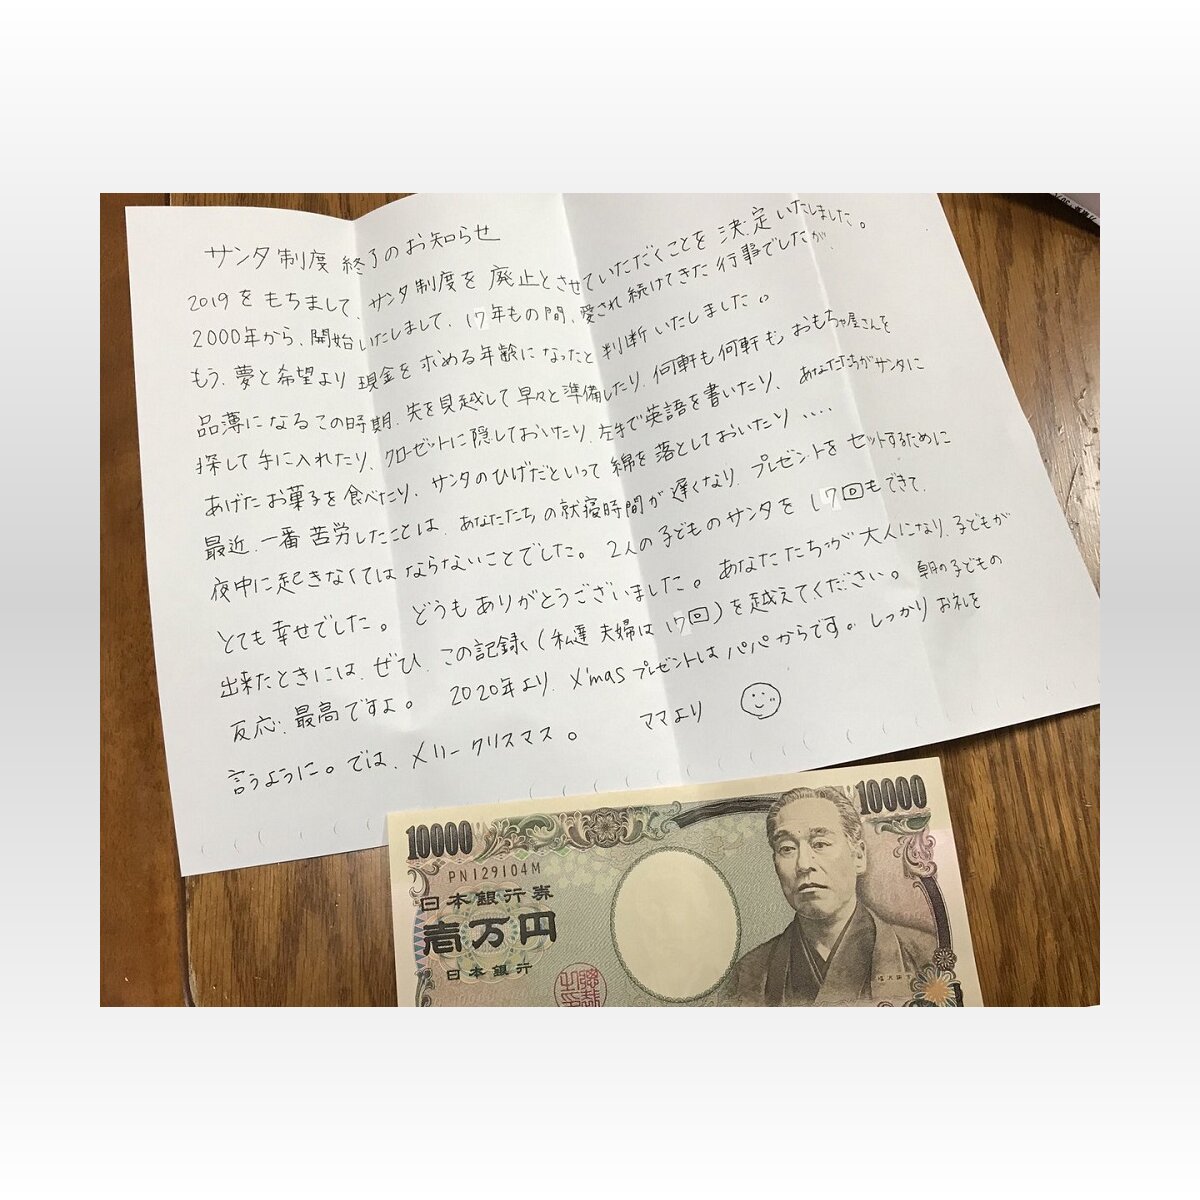 サンタ制度 終了のお知らせ
2019をもちまして、サンタ制度を廃止とさせていただくことを決定いたしました。
2000年から、開始いたしまして、17年もの間、愛され続けてきた行事でしたが、
もう、夢と希望より現金を求める年齢になったと判断いたしました。
品薄になるこの時期、先を見越して早々と準備したり、何軒も何軒も、おもちゃ屋さんを
探して手に入れたり、クローゼットに隠しておいたり、左手で英語を書いたり、あなたたちがサンタに
あげたお菓子を食べたり、サンタのひげだといって綿を落としておいたり‥‥
最近、一番苦労したことは、あなたたちの就寝時間が遅くなり、プレゼントをセットするために
夜中に起きなくてはならないことでした。2人の子どものサンタを17回もできて、
とても幸せでした。どうもありがとうございました。あなたたちが大人になり、子どもが
出来たときには、ぜひ、この記録(私達夫婦は17回)を越えてください。朝の子どもの
反応、最高ですよ。2020年より、X'masプレゼントはパパからです。しっかりお礼を
言うように。では、メリークリスマス。 ママより
10000 10000
PN129104M
日本銀行券
壱万円
日本銀行